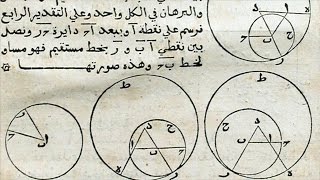 والبرهان في الكل واحد وعلى التقدير الرابع
فنرسم على نقطة آ وببعد آح دايرة حر ونصل
بين نقطتي آ ب و ر بخط مستقيم فهو مساو
لخط ب ح وهذه صورتها
ط
ط
ح
ح
د
د
ا
ب
ح
ه